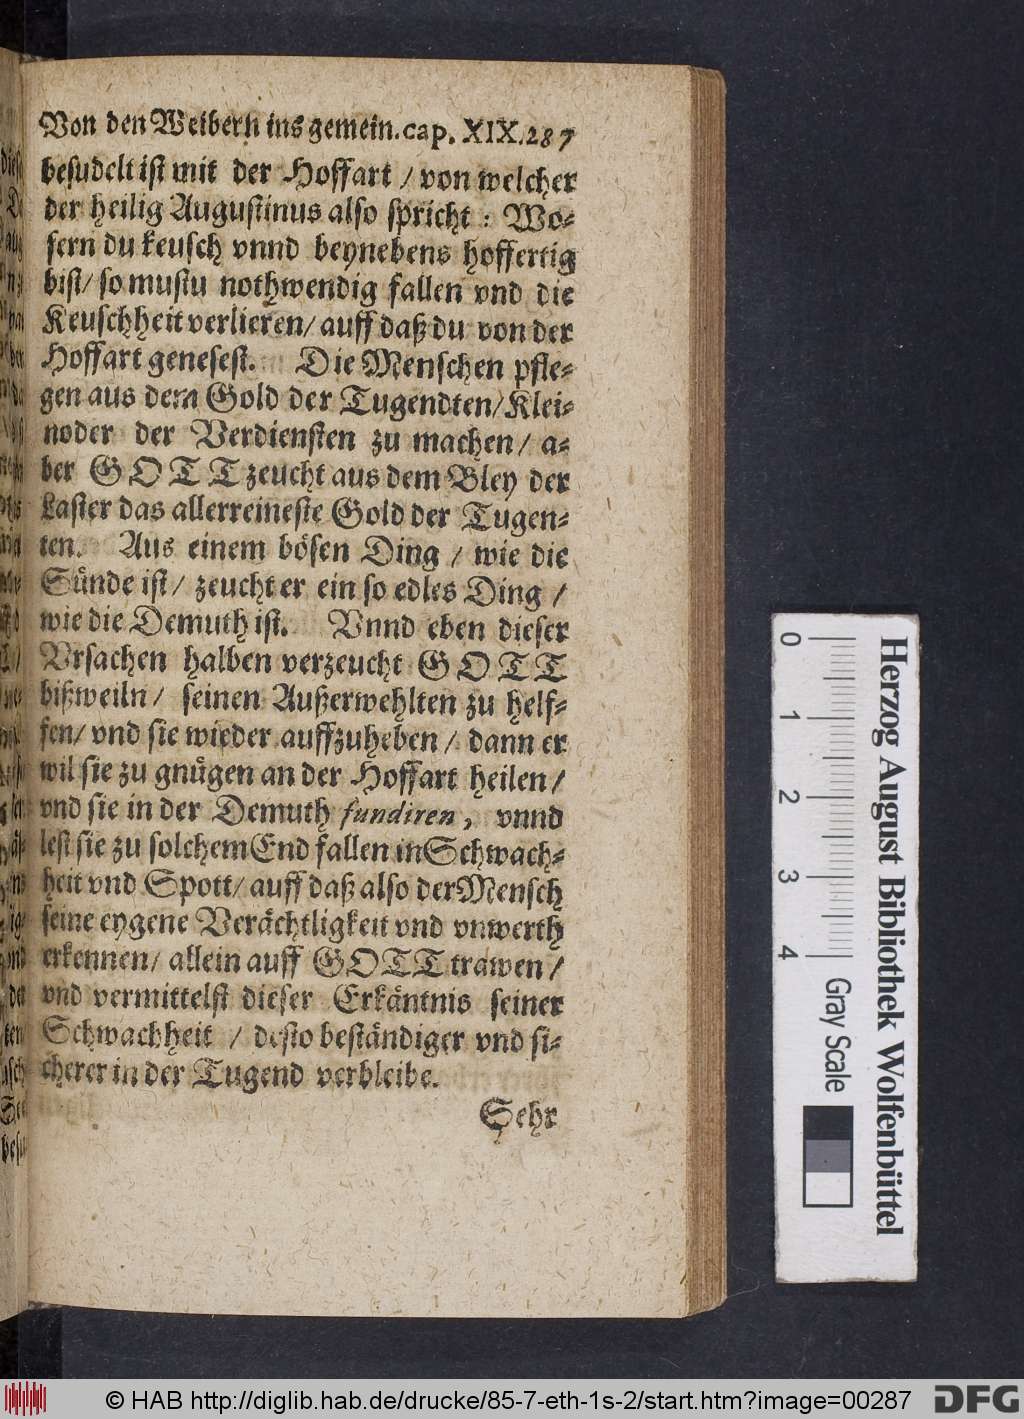 Von den Weibern ins gemein. cap. XIX. 287
besudelt ist mit der Hoffart / von welcher
der heilig Augustinus also spricht : Wo-
fern du keusch vnnd beynebens hoffertig
bist/ so mustu nothwendig fallen vnd die
Keuschheit verlieren/ auff daß du von der
Hoffart genesest. Die Menschen pfle-
gen aus dem Gold der Tugendten/ Klei-
noder der Verdiensten zu machen/ a-
ber GOTT zeucht aus dem Bley der
Laster das allerreineste Gold der Tugen-
ten. Aus einem bösen Ding / wie die
Sünde ist/ zeucht er ein so edles Ding /
wie die Demuth ist. Vnnd eben dieser
Vrsachen halben verzeucht GOTT
bißweiln/ seinen Außerwehlten zu helf-
fen/ vnd sie wieder auffzuheben/ dann er
wil sie zu gnügen an der Hoffart heilen/
vnd sie in der Demuth fundiren, vnnd
lest sie zu solchem End fallen in Schwach-
heit vnd Spott/ auff daß also der Mensch
seine eygene Verächtligkeit vnd vnwerth
erkennen/ allein auff GOTT trawen/
vnd vermittelst dieser Erkäntnis seiner
Schwachheit / desto beständiger vnd si-
cherer in der Tugend verbleibe.
Sehr
Herzog August Bibliothek Wolfenbüttel
0 1 2 3 4 Gray Scale
© HAB http://diglib.hab.de/drucke/85-7-eth-1s-2/start.htm?image=00287 DFG